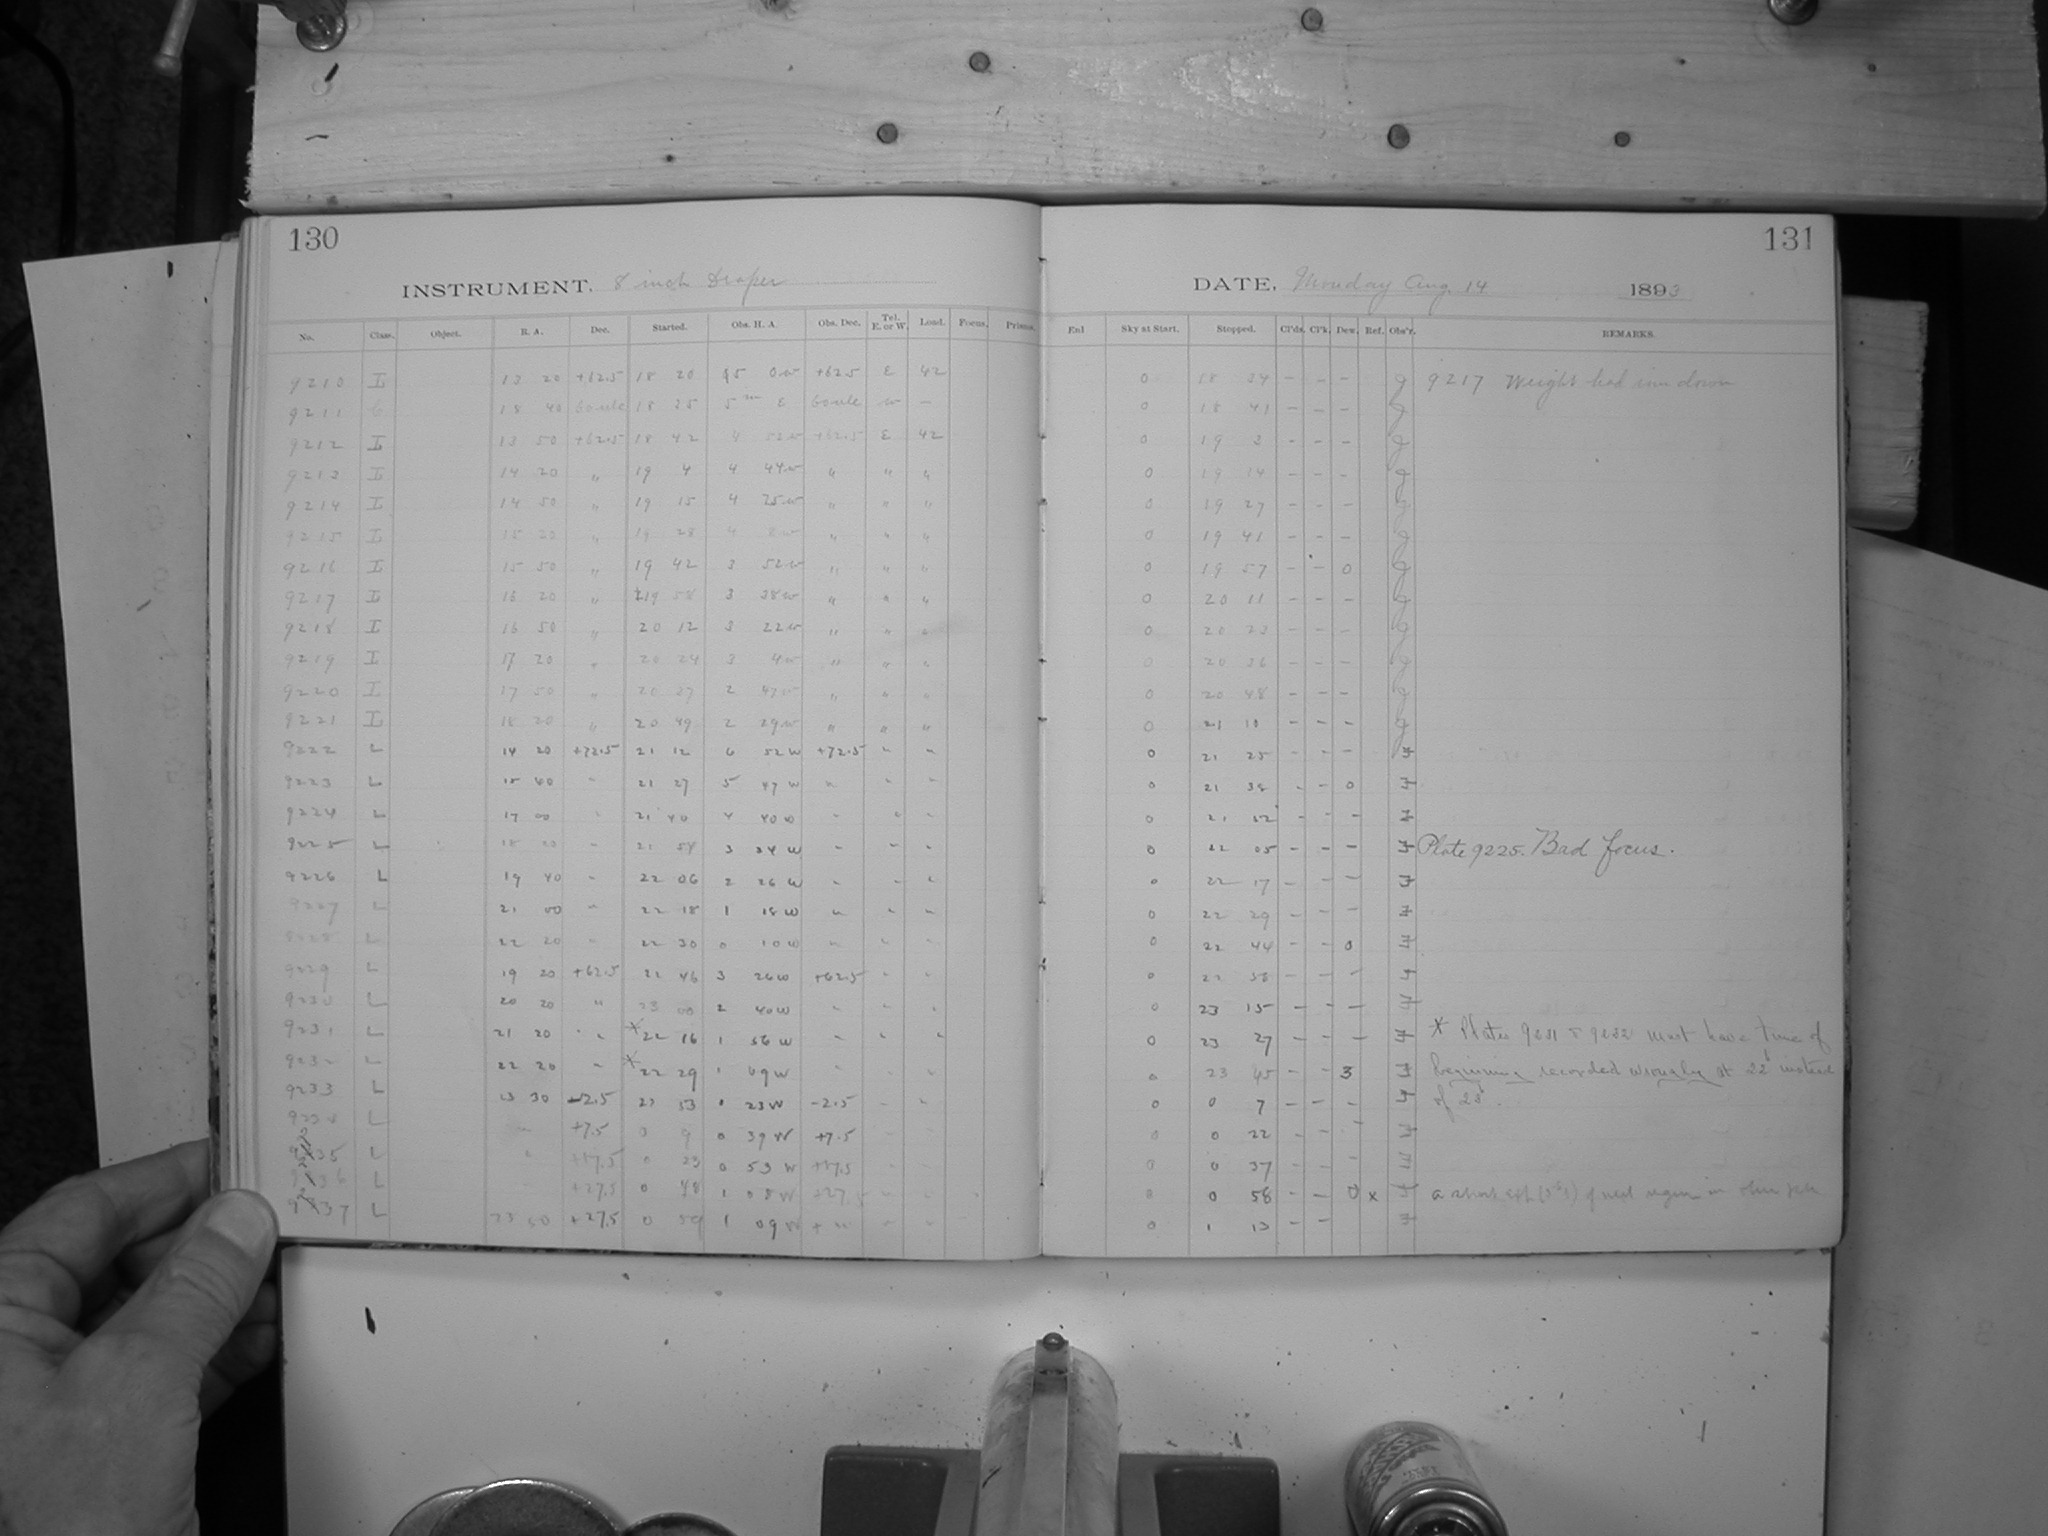 130
131
INSTRUMENT, 8 inch Draper
DATE, Monday Aug. 14 1893
No. Class. Object. R. A. Dec. Started. Obs. H. A. Obs. Dec. Tel. E. or W. Load. Focus. Prisms. Enl Sky at Start. Stopped. Cl'ds. Cl'k. Dew. Ref. Obs'r. REMARKS.
9210 I 13 20 +62.5 18 20 5 0w +62.5 E 42 0 18 34 - - - g 9217 Weight had run down
9211 18 40 18 35 5m E w - 0 18 41 - - - g
9212 I 13 50 +62.5 18 42 4 52w +62.5 E 42 0 19 3 - - - g
9213 I 14 20 " 19 4 4 44w " " " 0 19 14 - - - g
9214 I 14 50 " 19 15 4 25w " " " 0 19 27 - - - g
9215 I 15 20 " 19 28 4 8w " " " 0 19 41 - - - g
9216 I 15 50 " 19 42 3 52w " " " 0 19 57 - - 0 g
9217 I 16 20 " 19 58 3 38w " " " 0 20 11 - - - g
9218 I 16 50 " 20 12 3 22w " " " 0 20 23 - - - g
9219 I 17 20 " 20 24 3 4w " " " 0 20 36 - - - g
9220 I 17 50 " 20 37 2 47w " " " 0 20 48 - - - g
9221 I 18 20 " 20 49 2 29w " " " 0 21 10 - - - g
9222 L 14 20 +72.5 21 12 6 52W +72.5 " " 0 21 25 - - -
9223 L 15 40 " 21 27 5 47W " " " 0 21 38 - - 0
9224 L 17 00 " 21 40 4 40W " " " 0 21 52 - - -
9225 L 18 20 " 21 54 3 34W " " " 0 22 05 - - - Plate 9225. Bad focus.
9226 L 19 40 " 22 06 2 26W " " " 0 22 17 - - -
9227 L 21 00 " 22 18 1 18W " " " 0 22 29 - - -
9228 L 22 20 " 22 30 0 10W " " " 0 22 44 - - 0
9229 L 19 20 +62.5 22 46 3 26W +62.5 " " 0 22 58 - - -
9230 L 20 20 " 23 00 2 40W " " " 0 23 15 - - -
9231 L 21 20 " *22 16 1 56W " " " 0 23 27 - - - * Plates 9231 & 9232 must have time of
9232 L 22 20 " *22 29 1 09W " " " 0 23 45 - - 3 beginning recorded wrongly at 22h instead
9233 L 23 30 -2.5 23 53 0 23W -2.5 " " 0 0 7 - - - of 23h.
9234 L " +7.5 0 9 0 39W +7.5 0 0 22 - - -
35 L " +17.5 0 23 0 53W +17.5 0 0 37 - - -
36 L +27.5 0 48 1 08W +27.5 0 0 58 - - 0 x a short exp of next region in
37 L 23 50 +27.5 0 59 1 09W + " 0 1 13 - -